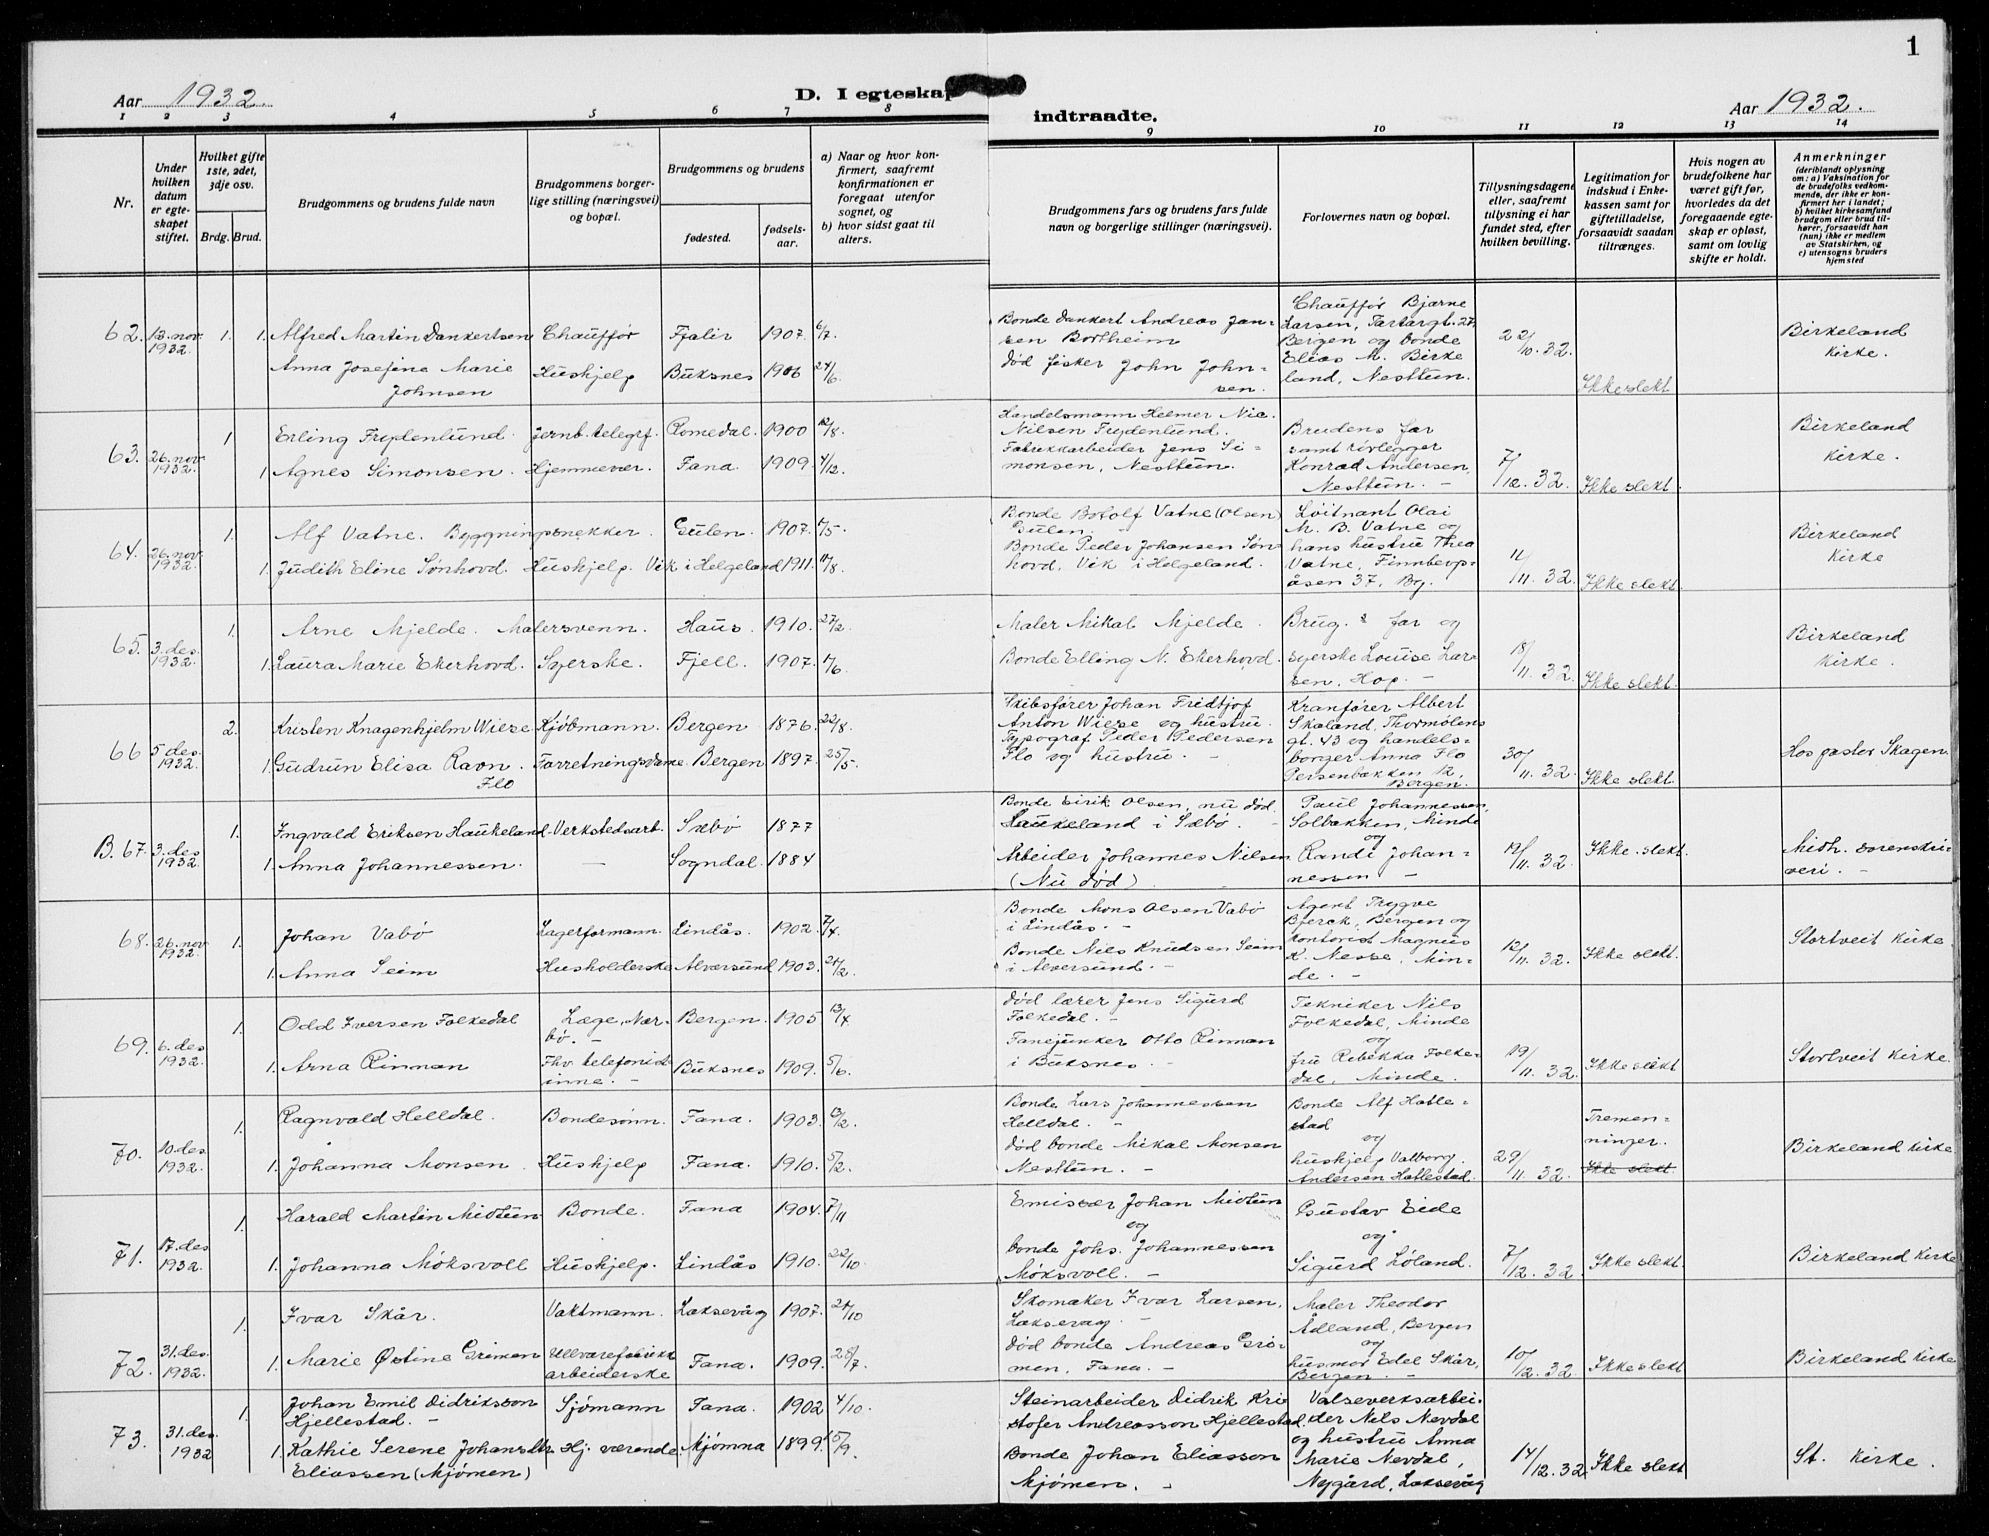 1
Aar 1932. D. I egteskap indtraadte. Aar 1932.
1 2 3 4 5 6 7 8 9 10 11 12 13 14
Nr.
Under hvilken datum er egteskapet stiftet.
Hvilket gifte 1ste, 2det, 3dje osv.
Brdg. Brud.
Brudgommens og brudens fulde navn
Brudgommens borgerlige stilling (næringsvei) og bopæl.
Brudgommens og brudens
fødested. fødselsaar.
a) Naar og hvor konfirmert, saafremt konfirmationen er foregaat utenfor sognet, og
b) hvor sidst gaat til alters.
Brudgommens fars og brudens fars fulde navn og borgerlige stillinger (næringsvei).
Forlovernes navn og bopæl.
Tillysningsdagene eller, saafremt tillysning ei har fundet sted, efter hvilken bevilling.
Legitimation for indskud i Enkekassen samt for giftetilladelse, forsaavidt saadan tiltrænges.
Hvis nogen av brudefolkene har været gift før, hvorledes da det foregaaende egteskap er opløst, samt om lovlig skifte er holdt.
Anmerkninger (deriblandt oplysning om: a) Vaksination for de brudefolks vedkommende, der ikke er konfirmert her i landet; b) hvilket kirkesamfund brudgom eller brud tilhører, forsaavidt han (hun) ikke er medlem av Statskirken, og c) utensogns bruders hjemsted
62. 13. nov 1932 1. 1. Alfred Martin Dankertsen Chauffør Fjalir 1907. 6/7.
Anna Josefine Marie Johnsen Hushjelp Buksnes 1906 24/6.
Bonde Dankert Andreas Jansen Bortheim
død fisker John Johnsen.
Chauffør Bjarne Larsen, Tartargt. 27 Bergen og bonde Elias M. Birkeland, Nesttun.
22/10. 32. Ikke slekt Birkeland Kirke.
63. 26. nov 1932. 1 Erling Frydenlund. Jernb. telegrf. Romedal. 1900 12/8.
1 Agnes Simonsen. Hjemmevær. Fana. 1909. 4/12.
Handelsmann Helmer Nic. Nilsen Frydenlund.
Fabrikkarbeider Jens Simonsen, Nesttun.
Brudens far samt rørlegger Konrad Andersen, Nesttun. -
7/12. 32. Ikke slekt. Birkeland Kirke.
64. 26. nov 1932. 1. Alf Vatne. Byggningssnekker. Gulen. 1907. /5.
1. Judith Eline Sønhovd. Hushjelp. Vik i Helgeland 1911. 11/8.
Bonde Botolf Vatne (Olsen) Gulen -
Bonde Peder Johansen Sønhovd, Vik i Helgeland.
Løitnant Olai M. B. Vatne og hans hustru Thea Vatne, Finnbergsåsen 37. Bg.
11/11. 32. Ikke slekt. Birkeland Kirke
65. 3. des 1932. 1. Arne Mjelde. Malersvenn. Haus. 1910. 27/2.
1. Laura Marie Ekerhovd. Syerske. Fjell. 1907. /6.
Maler Mikal Mjelde.
Bonde Elling N. Ekerhovd.
Brug. s far og syerske Louise Larsen, Hop. -
18/11. 32. Ikke slekt. Birkeland Kirke.
66 5. des. 1932. 2. Kristen Knagenhjelm Wiese Kjøbmann. Bergen 1876. 22/8.
1. Gudrun Elisa Ravn. Flo Forretningsdame. Bergen 1897. 25/5.
Skibsfører Johan Fridtjof Anton Wiese og hustru.
Typograf Peder Pedersen Flo og hustru. -
Kranfører Albert Skaland, Thormølens gt. 43 og handelsborger Anna Flo Persenbakken 12, Bergen.
30/11. 32. Ikke slekt. Hos pastor Skagen.
B. 67. 3. des 1932. 1. Ingvald Eriksen Haukeland Verkstedsarb. Sæbø 1877
1. Anna Johannessen. - Sogndal. 1884
Bonde Eirik Olsen, nu død Haukeland i Sæbø. -
Arbeider Johannes Nilsen (Nu død)
Paul Johannessen, Solbakken, Minde og Randi Johannessen -
19/11. 32. Ikke slekt. Midh. sorenskriveri. -
68. 26. nov 1932. 1. Johan Vabø Lagerformann. Lindås. 1902. 7/X.
1. Anna Seim Husholderske Alversund 1903. 21/2.
Bonde Mons Olsen Vabø i Lindås. -
Bonde Nils Knudsen Seim i Alversund. -
Agent Trygve Bjerck, Bergen og kontorist Magnus K. Nesse, Minde. -
12/11. 32. Ikke slekt. Storetveit Kirke
69. 6. des 1932. 1. Odd Iversen Folkedal Læge, Nærbø. - Bergen. 1905 13/X
1. Arna Rinman Fhv. telefonistinne. - Buksnes 1909. 5/6.
død lærer Jens Sigurd Folkedal. -
Fanejunker Otto Rinman i Buksnes. -
Tekniker Nils Folkedal, Minde og fru Rebekka Folkedal, Minde.
19/11. 32. Ikke slekt Stortveit Kirke.
70. 10. des 1932. 1. Ragnvald Helldal. Bondesønn. Fana. 1903. 13/2.
1. Johanna Monsen. Hushjelp Fana. 1910. 5/2.
Bonde Lars Johannessen Helldal. -
død bonde Mikal Monsen Nesttun. -
Bonde Alf Hatlestad og hushjelp Valborg Andersen Hatlestad.
29/11. 32. Tremenninger. Ikke slekt Birkeland Kirke
71. 17. des 1932. 1. Harald Martin Midtun Bonde. Fana 1904. 7/11
1. Johanna Möksvoll Hushjelp. Lindås 1910. 22/10
Emisær Johan Midtun og
bonde Johs. Johannessen Möksvoll. -
Gustav Eide og Sigurd Løland.
7/12. 32. Ikke slekt. Birkeland Kirke
72. 31. des. 1932. 1. Ivar Skår. Vaktmann. Laksevåg 1907. 21/10
1. Marie Østine Grimen Ullvarefabrikkarbeiderske Fana. 1909. 28/7.
Skomaker Ivar Larsen, Laksevag. -
død bonde Andreas Grimen, Fana. -
Maler Theodor Ådland, Bergen og husmor Edel Skår, Bergen. -
10/12. 32. Ikke slekt Birkeland Kirke
73. 31. des. 1932 1. Johan Emil Didriksson Hjellestad. - Sjømann Fana. 1902 4/10.
1. Kathie Serene Johansdtr. Eliassen (Mjømen) Hj. værende. Mjømna 1899. 15/9.
Steinarbeider Didrik Kristofer Andreasson Hjellestad.
Bonde Johan Eliasson Mjømen. -
Valseverksarbeider Nils Nevdal og hustru Anna Marie Nevdal, Nygård, Laksevåg
14/12. 32. Ikke slekt St. Kirke.